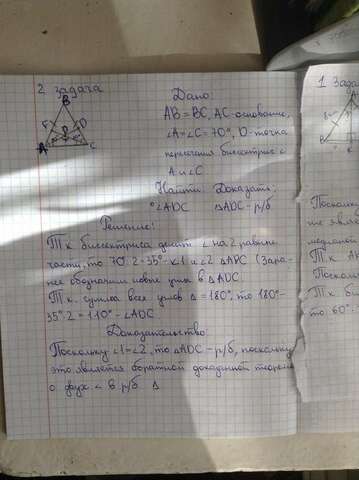 2 задача
B
F
D
P
A
C
Дано:
AB=BC, AC-основание,
∠A=∠C=70°, D-точка
пересечения биссектрис с
A и ∠C
Найти: Доказать:
°∠ADC ΔADC-р/б
Решение:
Т.к. биссектриса делит ∠ на 2 равные
части, то 70:2=35°-∠1 и ∠2 ΔADC (Зара-
нее обозначим новые углы в ΔADC.
Т.к. сумма всех углов Δ=180°, то 180°-
35°·2=110°-∠ADC
Доказательство:
Поскольку ∠1=∠2, то ΔADC-р/б, поскольку
это является обратной доказанной теореме
о двух ∠ в р/б Δ
1 Задача
Поскольку
Т.к. AB
Поскольку
Т.к. би
то 60°: